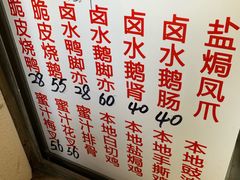 盐焗凤爪
卤水鹅肠 40
卤水鹅肾 40
卤水鹅脚亦 60
卤水鸭脚亦 28
脆皮烧鹅 55
脆皮烧鸭 28
本地豉
本地手撕鸡
本地盐焗鸡
本地白切鸡
蜜汁排骨
蜜汁花叉 56
蜜汁梅叉 56